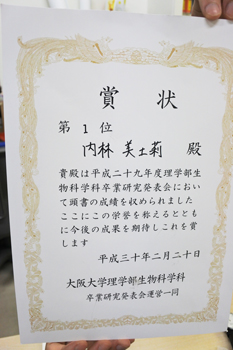 賞状
第1位
内林 美土莉 殿
貴殿は平成二十九年度理学部生
物科学科卒業研究発表会におい
て頭書の成績を収められました
ここにこの栄誉を称えるととも
に今後の成果を期待しこれを賞
します
平成三十年二月二十日
大阪大学理学部生物科学科
卒業研究発表会運営一同